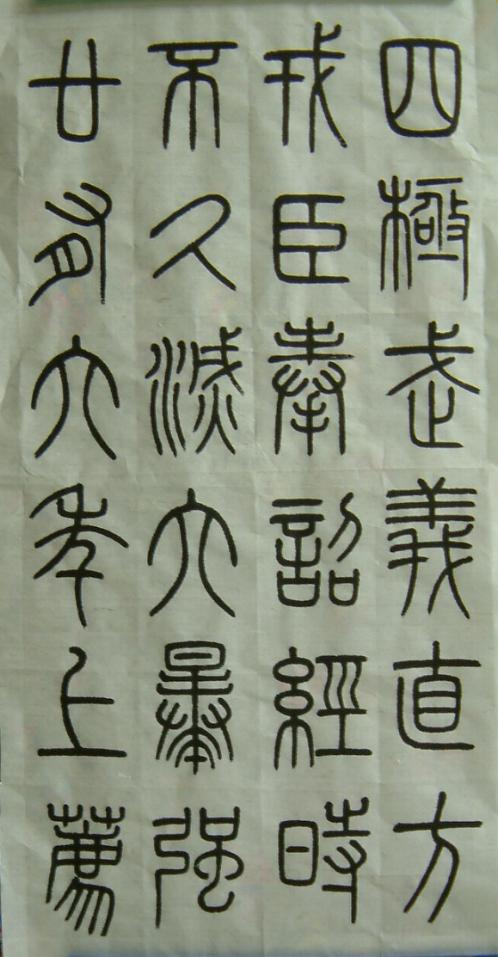 四極武義直方
戎臣奉詔經時
不久滅六暴強
廿有六年上薦